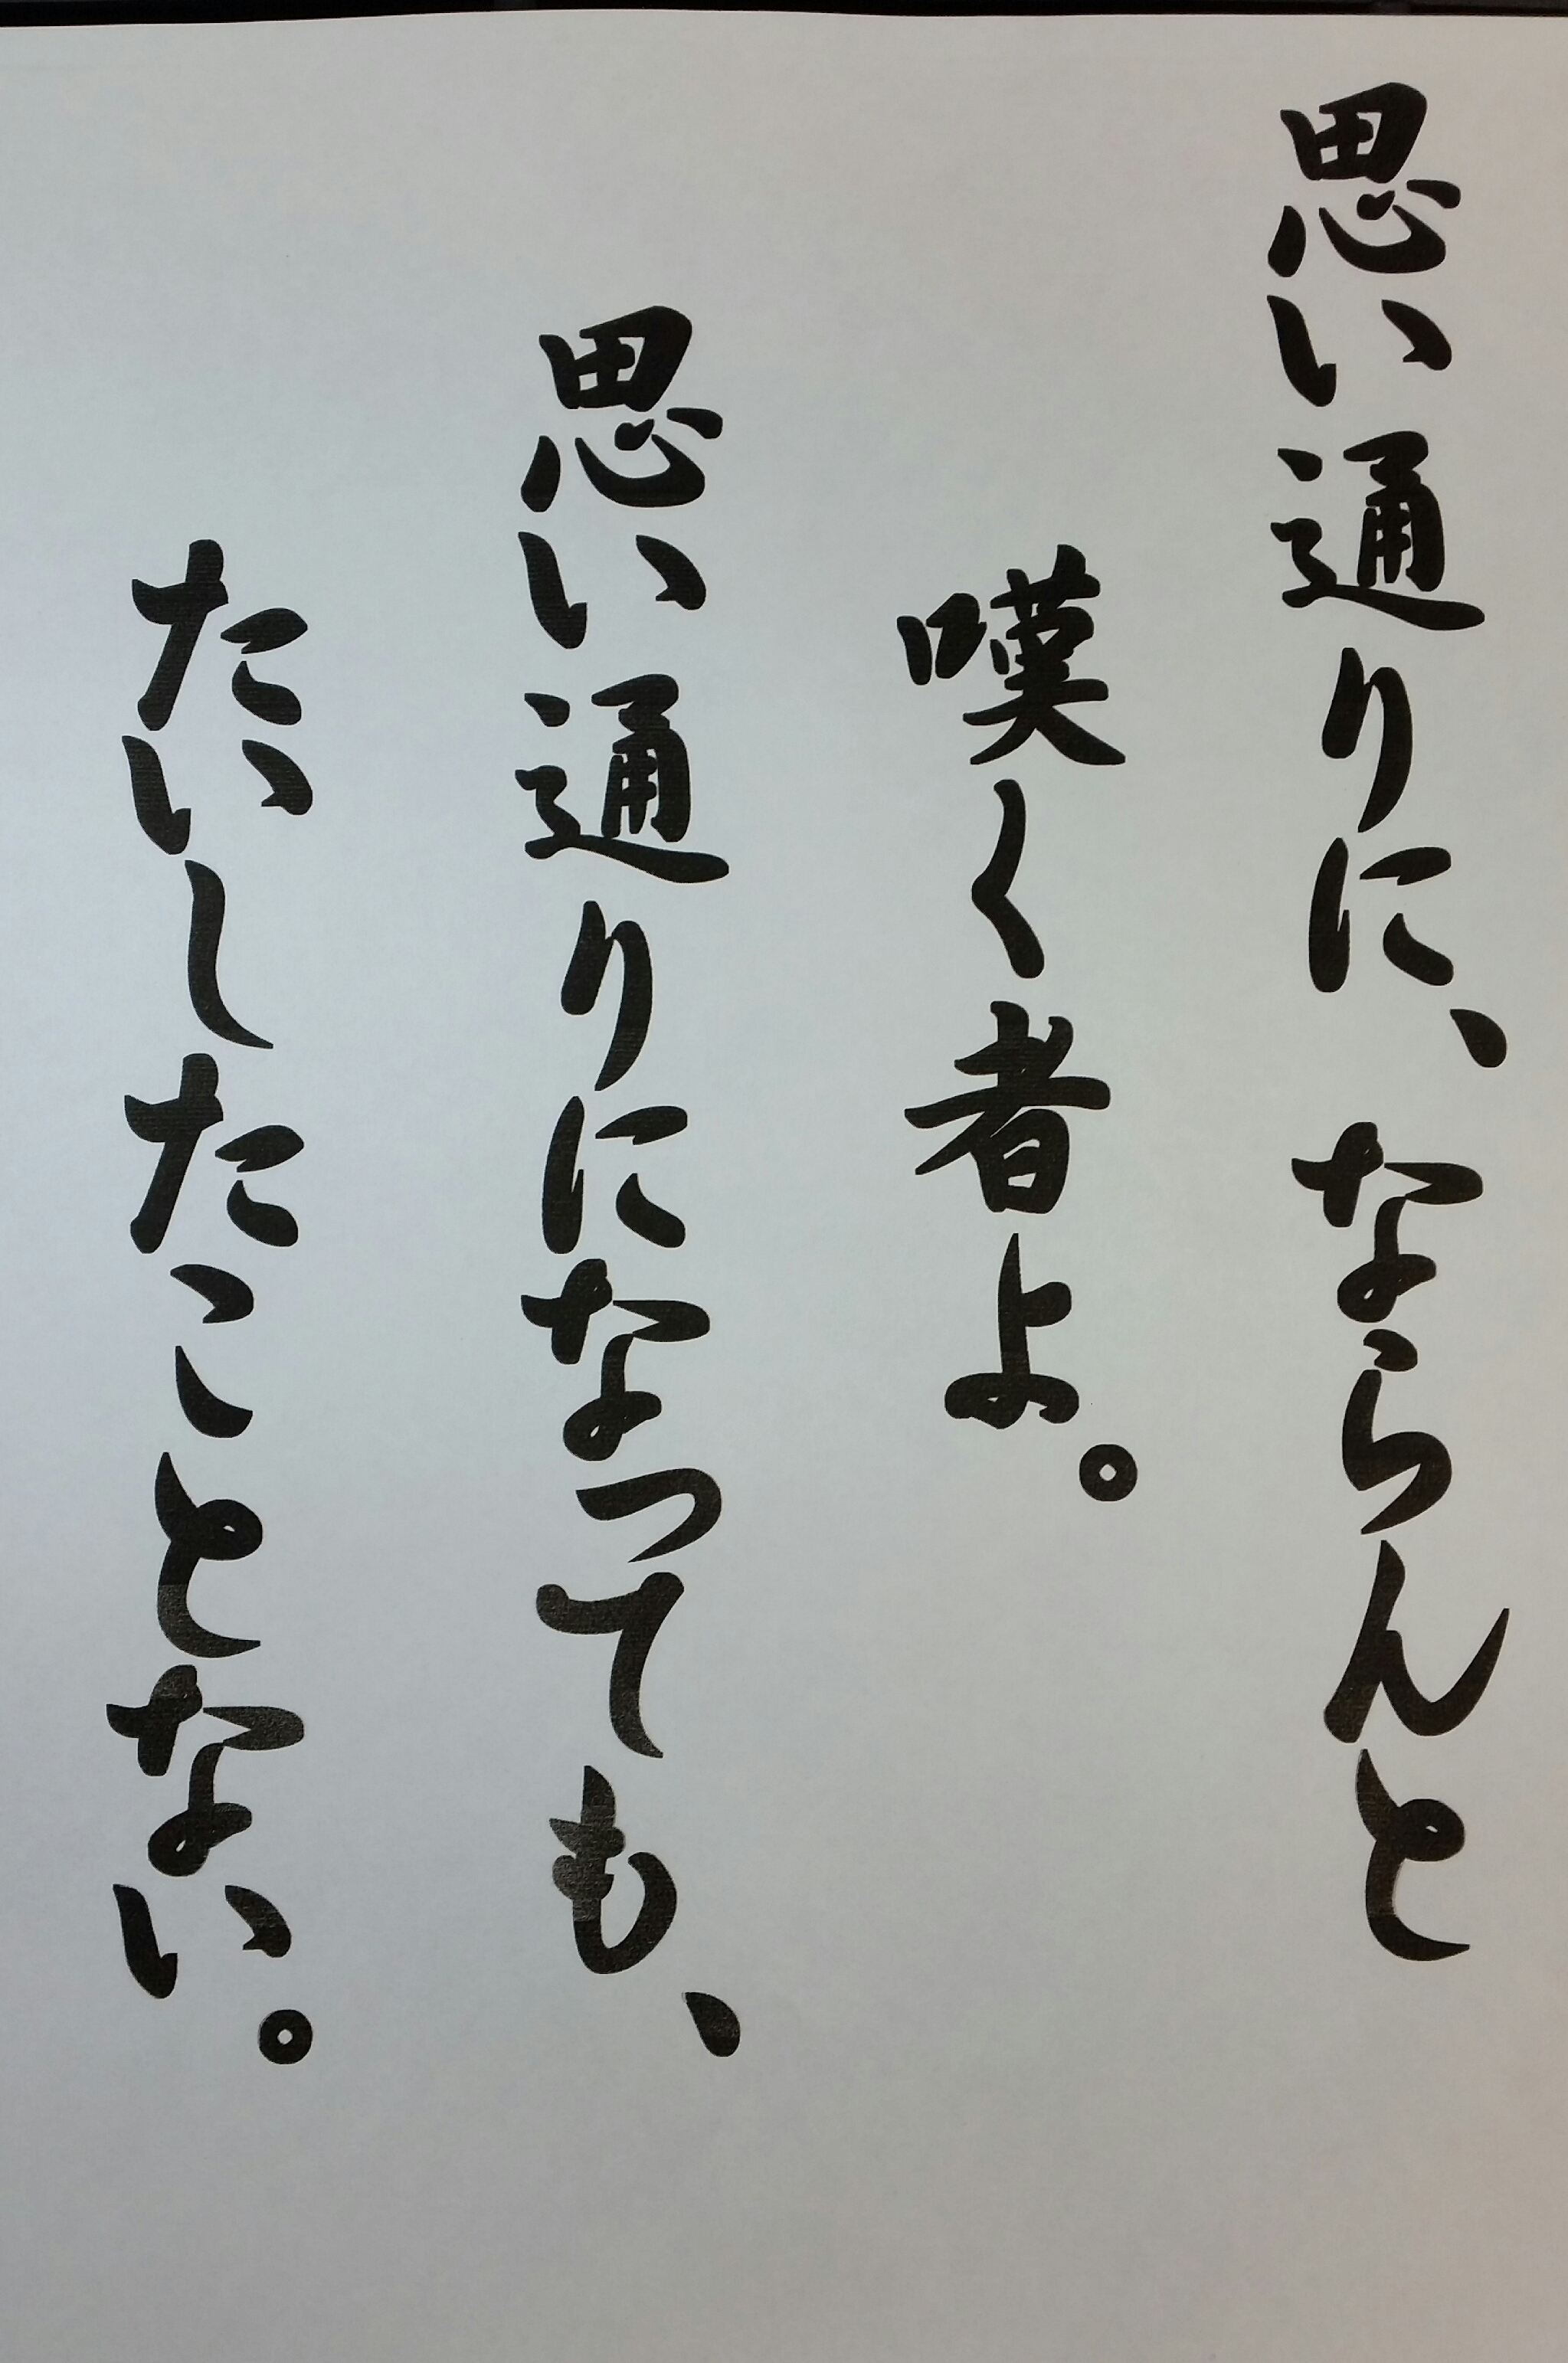 思い通りに、ならんと
嘆く者よ。
思い通りになっても、
たいしたことない。